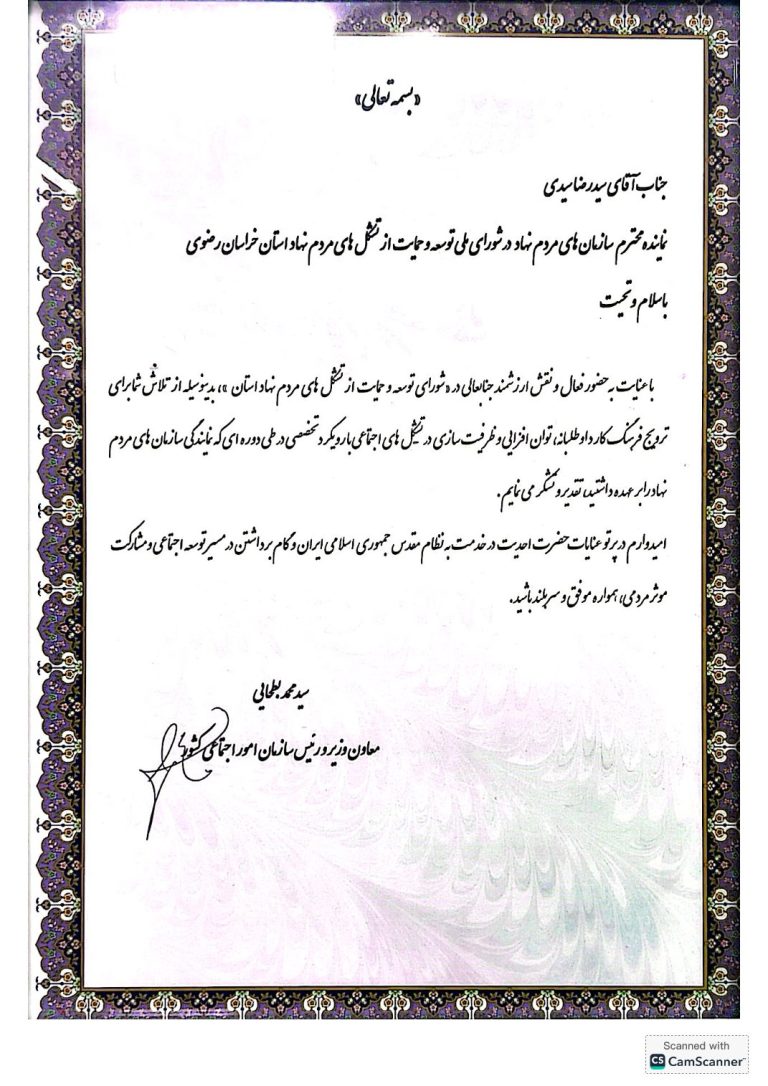 «بسمه تعالی»
جناب آقای سیدرضا سیدی
نماینده محترم سازمان های مردم نهاد در شورای ملی توسعه و حمایت از تشکل های مردم نهاد استان خراسان رضوی
با سلام و تحیت
با عنایت به حضور فعال و نقش ارزشمند جنابعالی در «شورای توسعه و حمایت از تشکل های مردم نهاد استان»، بدینوسیله از تلاش شما برای
ترویج فرهنگ کار داوطلبانه، توان افزایی و ظرفیت سازی در تشکل های اجتماعی با رویکرد تخصصی در طی دوره ای که نمایندگی سازمان های مردم
نهاد را بر عهده داشتید، تقدیر و تشکر می نمایم.
امیدوارم در پرتو عنایات حضرت احدیت در خدمت به نظام مقدس جمهوری اسلامی ایران و گام برداشتن در مسیر توسعه اجتماعی و مشارکت
موثر مردمی، همواره موفق و سربلند باشید.
سید محمد بطحایی
معاون وزیر و رئیس سازمان امور اجتماعی کشور
Scanned with
CS CamScanner